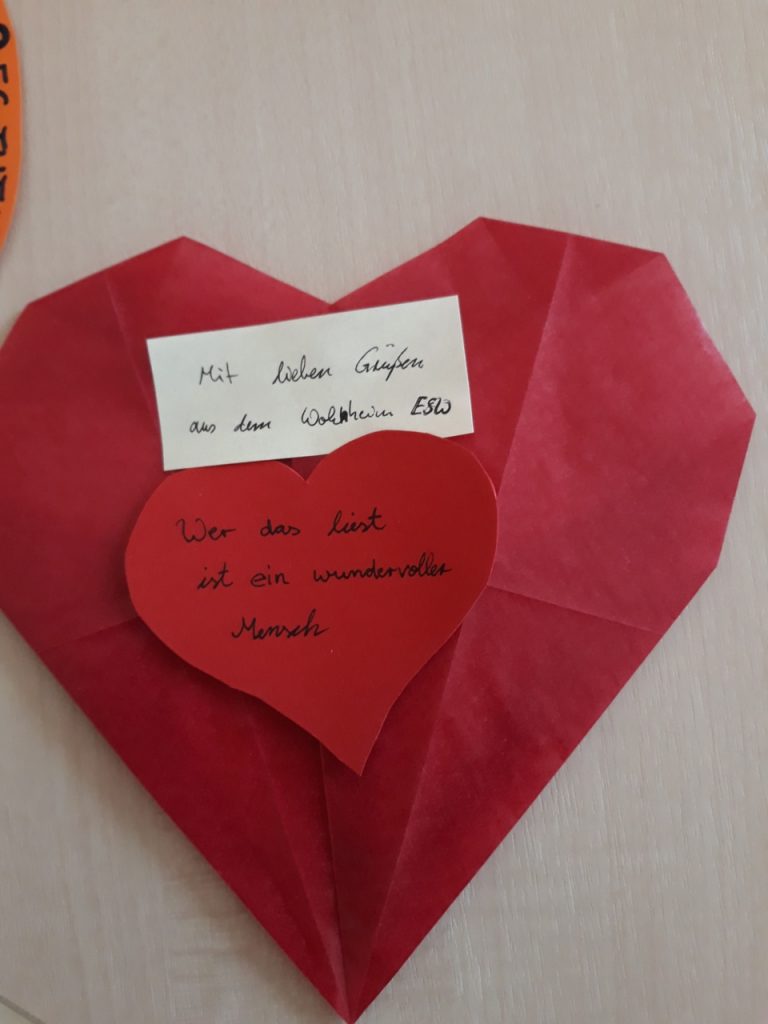 Mit lieben Grüßen
aus dem Wohnheim ESW
Wer das liest
ist ein wundervoller
Mensch